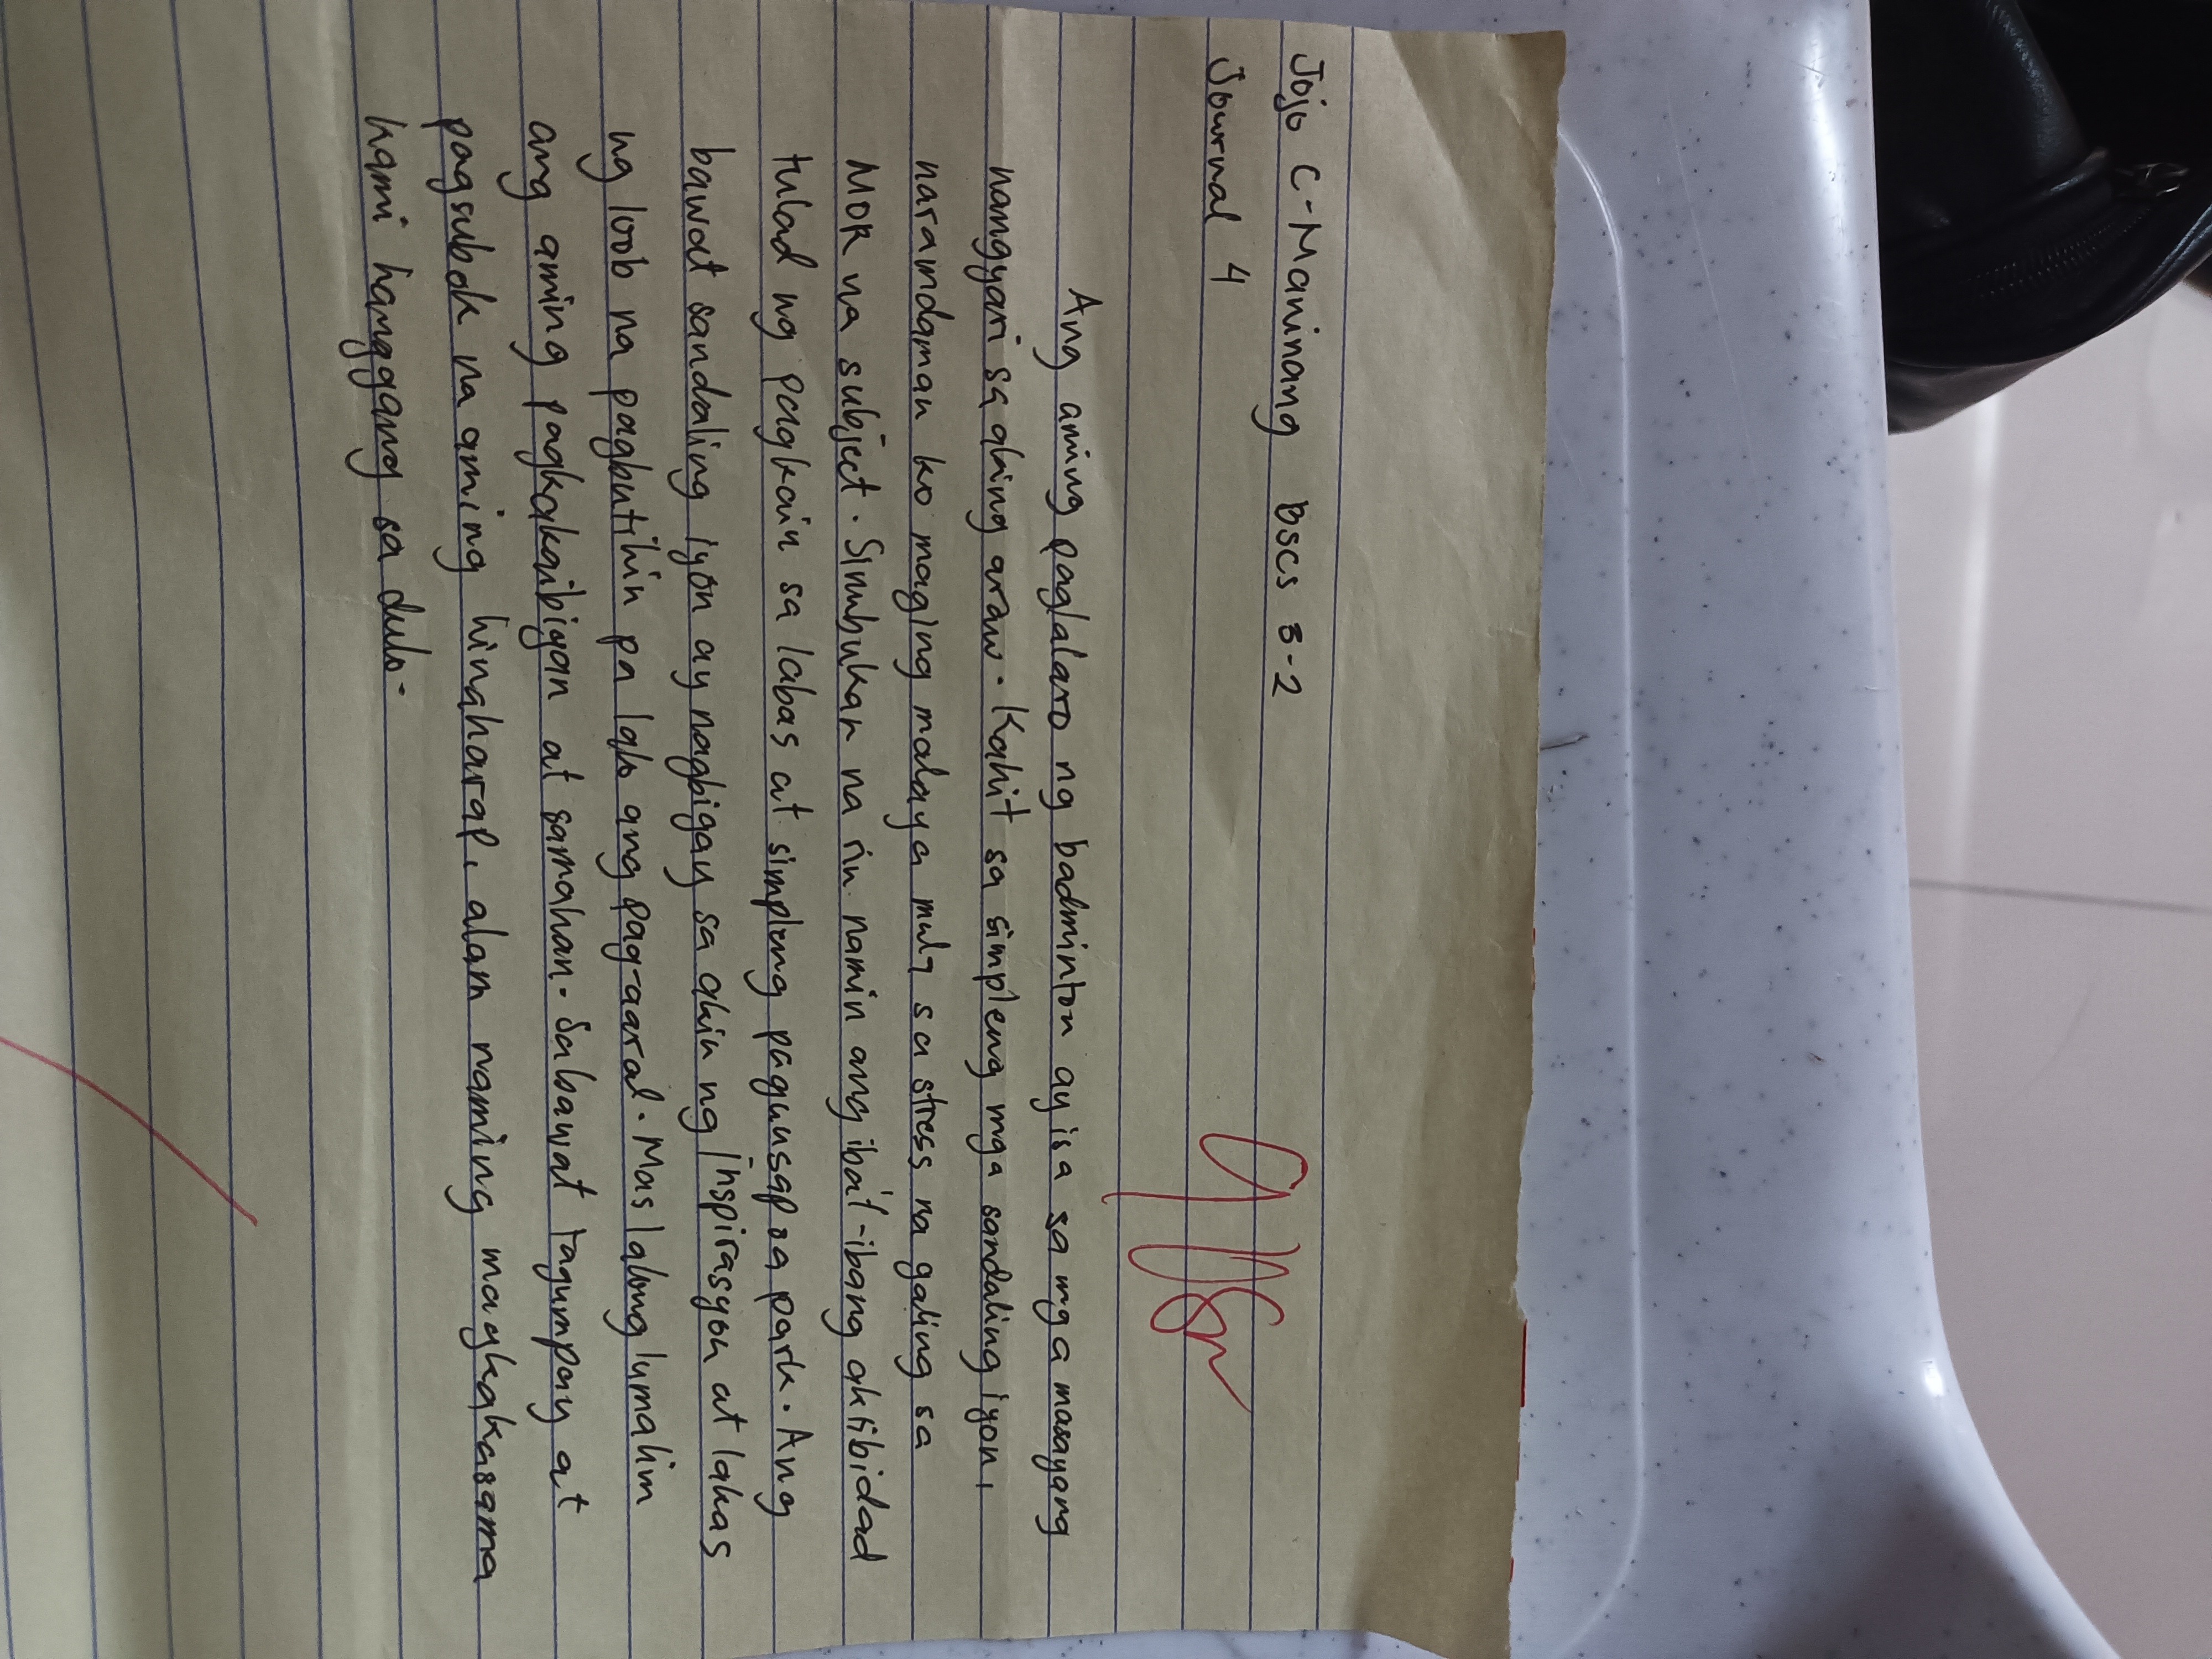 Jojo C-Maninang BSCS 3-2
Journal 4
9
Ang aming paglalaro ng badminton ay isa sa mga masayang
nangyari sa aking araw. Kahit sa simpleng mga sandaling iyon,
naramdaman ko maging malaya mula sa stress na galing sa
MOR na subject. Sinubukan na rin namin ang iba't-ibang aktibidad
tulad ng pagkain sa labas at simpleng paguusap sa park. Ang
bawat sandaling iyon ay nagbigay sa akin ng inspirasyon at lakas
ng loob na pagbutihin pa lalo ang pag-aaral. Mas lalong lumalim
ang aming pagkakaibigan at samahan. Sa bawat tagumpay at
pagsubok na aming hinaharap, alam naming magkakasama
kami hanggang sa dulo.